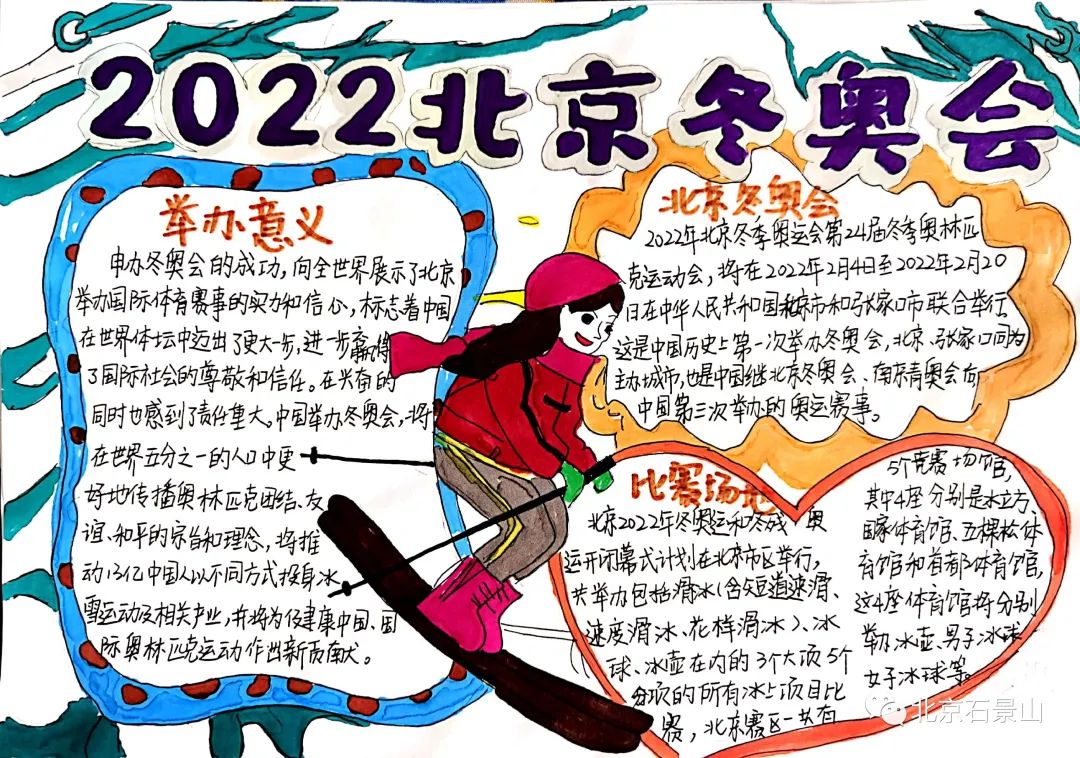 2022北京冬奥会
举办意义
申办冬奥会的成功,向全世界展示了北京
举办国际体育赛事的实力和信心,标志着中国
在世界体坛中迈出了更大一步,进一步赢得
了国际社会的尊敬和信任。在兴奋的
同时也感到了责任重大。中国举办冬奥会,将
在世界五分之一的人口中更
好地传播奥林匹克团结、友
谊、和平的宗旨和理念,将推
动13亿中国人以不同方式投身冰
雪运动及相关产业,并将为健康中国、国
际奥林匹克运动作出新贡献。
北京冬奥会
2022年北京冬季奥运会第24届冬季奥林匹
克运动会,将在2022年2月4日至2022年2月20
日在中华人民共和国北京市和张家口市联合举行。
这是中国历史上第一次举办冬奥会,北京、张家口同为
主办城市,也是中国继北京冬奥会、南京青奥会后
中国第三次举办的奥运赛事。
比赛场地
北京2022年冬奥运和冬残奥
运开闭幕式计划在北京市区举行,
共举办包括滑冰(含短道速滑、
速度滑冰、花样滑冰)、冰
球、冰壶在内的3个大项5个
分项的所有冰上项目比
赛,北京赛区一共有
5个竞赛场馆,
其中4座分别是水立方、
国家体育馆、五棵松体
育馆和首都体育馆,
这4座体育馆将分别
举办冰壶、男子冰球
女子冰球等。
北京石景山